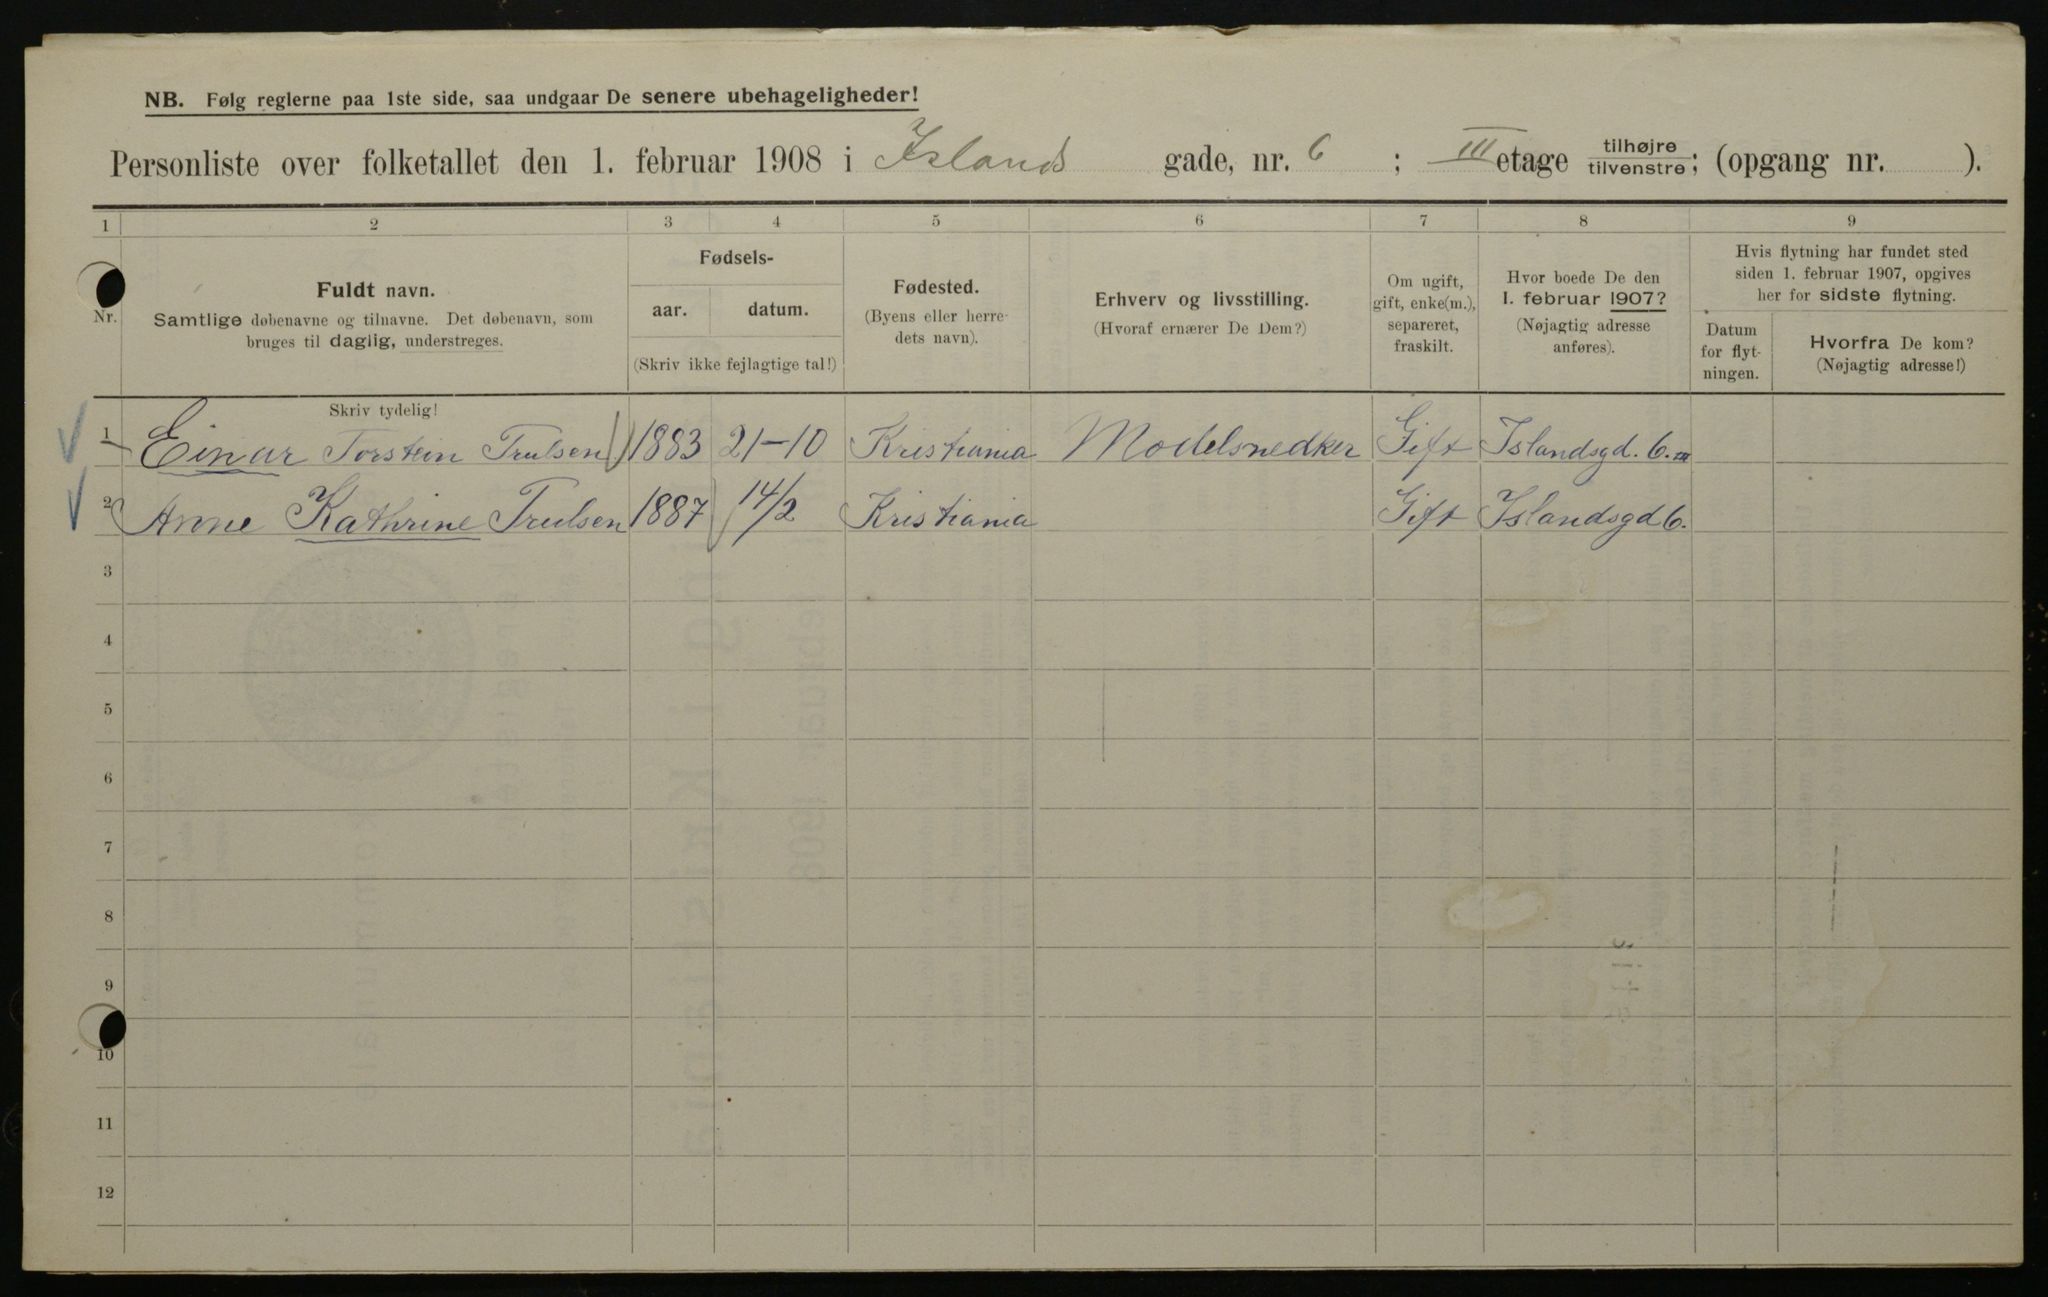 NB. Følg reglerne paa 1ste side, saa undgaar De senere ubehageligheder!
Personliste over folketallet den 1. februar 1908 i Islands gade, nr. 6 ; III etage tilhøjre tilvenstre; (opgang nr. ).
1 2 3 4 5 6 7 8 9
Nr.
Fuldt navn.
Samtlige døbenavne og tilnavne. Det døbenavn, som
bruges til daglig, understreges.
Skriv tydelig!
Fødsels-
aar. datum.
(Skriv ikke fejlagtige tal!)
Fødested.
(Byens eller herre-
dets navn).
Erhverv og livsstilling.
(Hvoraf ernærer De Dem?)
Om ugift,
gift, enke(m.),
separeret,
fraskilt.
Hvor boede De den
1. februar 1907?
(Nøjagtig adresse
anføres).
Hvis flytning har fundet sted
siden 1. februar 1907, opgives
her for sidste flytning.
Datum
for flyt-
ningen.
Hvorfra De kom?
(Nøjagtig adresse!)
1 Einar Torstein Trulsen 1883 21-10 Kristiania Modelsnedker Gift Islandsgd. 6. III
2 Anne Kathrine Trulsen 1887 14/2 Kristiania Gift Islandsgd 6.
3
4
5
6
7
8
9
10
11
12